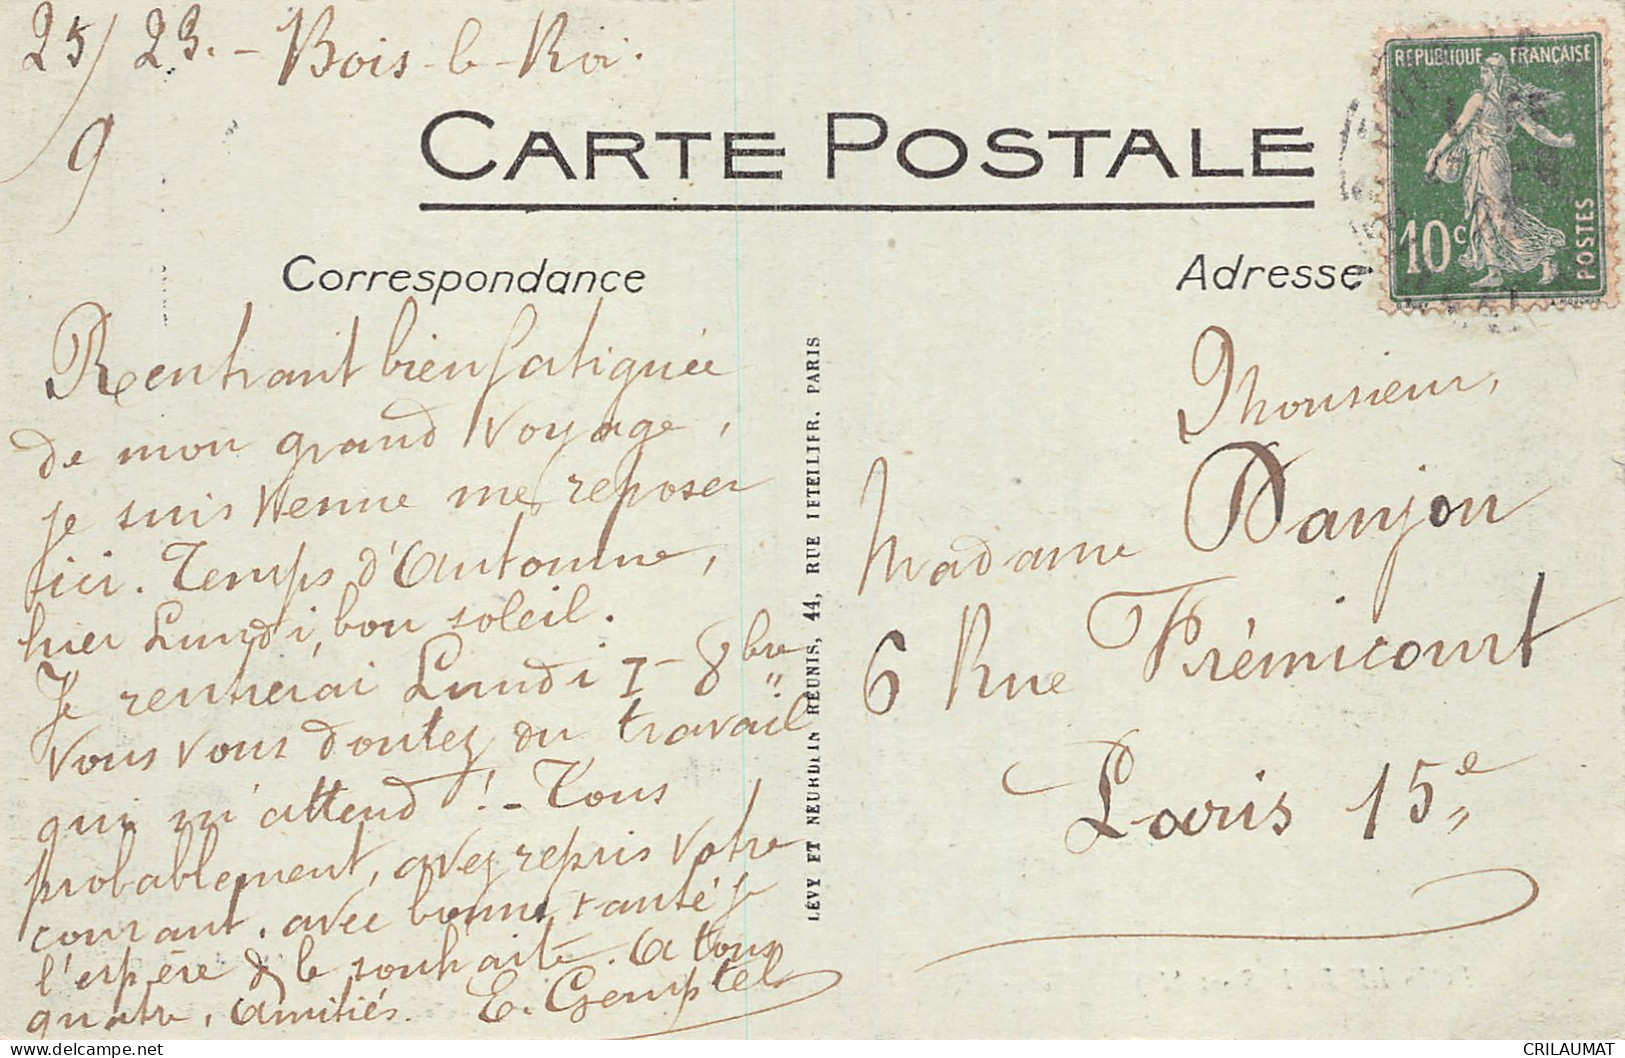 25/23. - Bois-le-Roi.
9
CARTE POSTALE
REPUBLIQUE FRANÇAISE
10c
POSTES
Correspondance
Adresse
Rentrant bien fatiguée
de mon grand voyage,
je suis venue me reposer
ici. Temps d'Automne,
hier Lundi, bon soleil.
Je rentrerai Lundi 1- 8bre
Vous vous doutez du travail
qui m'attend! - Tous
probablement, avez repris votre
courant. avec bonne santé je
l'espère & le souhaite. A tous
quatre, Amitiés. E. Gemptel
LÉVY ET NEURDEIN RÉUNIS, 44, RUE LETELLIER, PARIS
Monsieur,
Madame Danjou
6 Rue Frémicourt
Paris 15e
CRILAUMAT